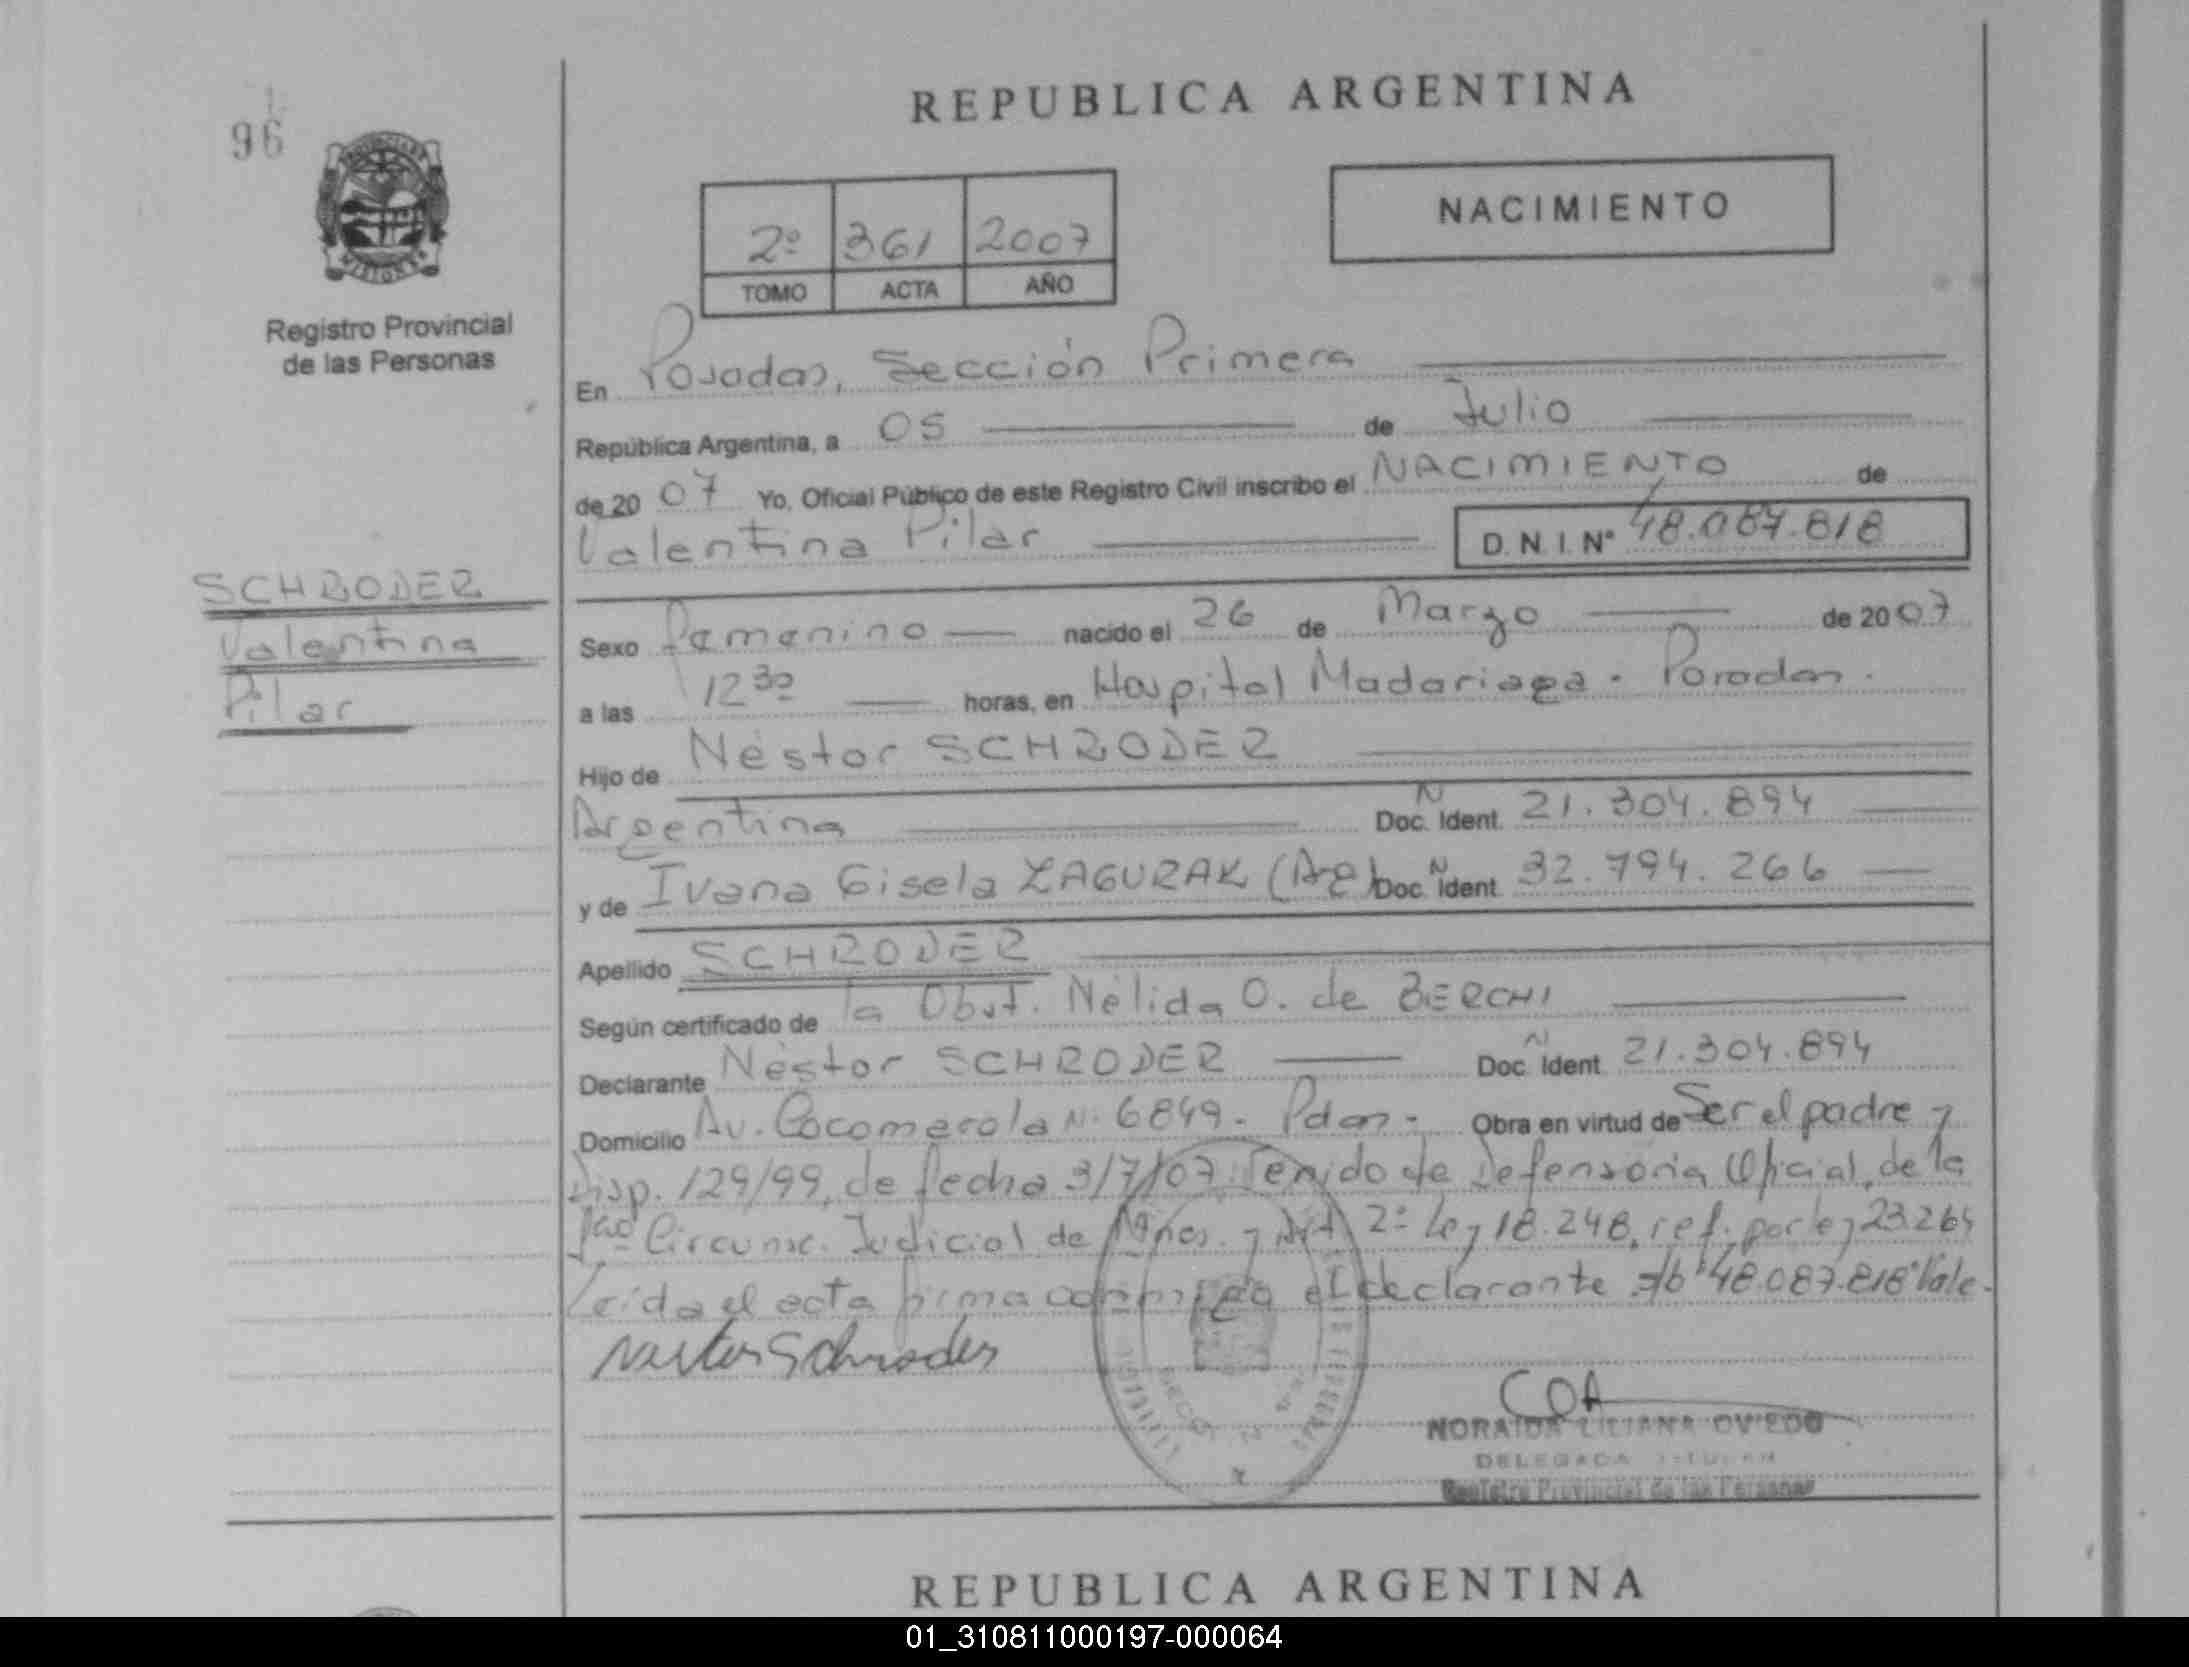 REPUBLICA ARGENTINA
96
NACIMIENTO
2º 361 2007
TOMO ACTA AÑO
Registro Provincial
de las Personas
En Posadas, Sección Primera
República Argentina, a 05 de Julio
de 2007 Yo, Oficial Público de este Registro Civil inscribo el NACIMIENTO de
Valentina Pilar D.N.I. Nº 48.087.818
SCHRODER
Valentina
Pilar
Sexo Femenino nacido el 26 de Marzo de 2007
a las 12 30 horas, en Hospital Madariaga - Posadas.
Hijo de Néstor SCHRODER
Argentina Doc. Ident. N 21.304.894
y de Ivana Gisela ZAGURAK (Arg) Doc. Ident. N 32.794.266
Apellido SCHRODER
Según certificado de la Obst. Nélida O. de BERCHI
Declarante Néstor SCHRODER Doc. Ident. N 21.304.894
Domicilio Av. Cocomarola N. 6849 - Pdas - Obra en virtud de Ser el padre y
Disp. 129/99, de fecha 3/7/07 Venido de Defensoria Oficial, de la
1ra Circunsc. Judicial de Mnes. y Art 2º Ley 18.248, ref. por ley 23.264
Leida el acta firma conmigo el declarante s/b "48.087.818" Vale.
Nestor Schroder
NORAIDA LILIANA OVIEDO
DELEGADA TITULAR
Registro Provincial de las Personas
REPUBLICA ARGENTINA
01_310811000197-000064